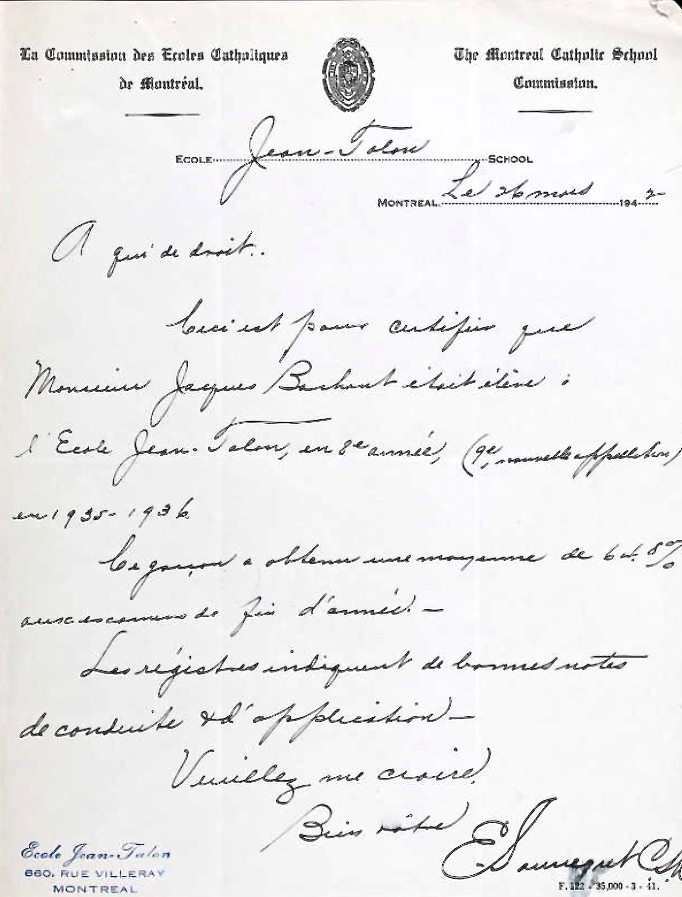 La Commission des Ecoles Catholiques
de Montréal.
The Montreal Catholic School
Commission.
ECOLE Jean-Talon SCHOOL
MONTREAL Le 26 mars 1942
A qui de droit..
Ceci est pour certifier que
Monsieur Jacques était élève à
l'Ecole Jean-Talon, en 8e année, (9e, nouvelle appellation)
en 1935-1936
Ce garçon a obtenu une moyenne de 64.8%
aux examens de fin d'année. —
Les régistres indiquent de bonnes notes
de conduite & d'application —
Veuillez me croire,
Bien vôtre
E.
Ecole Jean-Talon
660, RUE VILLERAY
MONTREAL
F. 122 - 35,000 - 3 - 41.